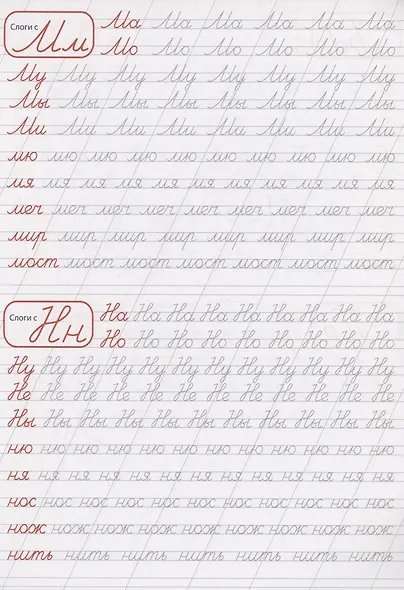 Слоги с Мм
Ма Ма Ма Ма Ма Ма Ма
Мо Мо Мо Мо Мо Мо Мо
Му Му Му Му Му Му Му Му Му
Мы Мы Мы Мы Мы Мы Мы Мы
Ми Ми Ми Ми Ми Ми Ми Ми
мю мю мю мю мю мю мю мю мю мю
мя мя мя мя мя мя мя мя мя мя мя
меч меч меч меч меч меч меч меч меч
мир мир мир мир мир мир мир мир
мост мост мост мост мост мост мост
Слоги с Нн
На На На На На На На На На
Но Но Но Но Но Но Но Но
Ну Ну Ну Ну Ну Ну Ну Ну Ну Ну Ну Ну
Не Не Не Не Не Не Не Не Не Не Не Не
Ны Ны Ны Ны Ны Ны Ны Ны Ны Ны
ню ню ню ню ню ню ню ню ню ню ню
ня ня ня ня ня ня ня ня ня ня ня ня
нос нос нос нос нос нос нос нос нос нос нос
нож нож нож нож нож нож нож нож нож
нить нить нить нить нить нить нить